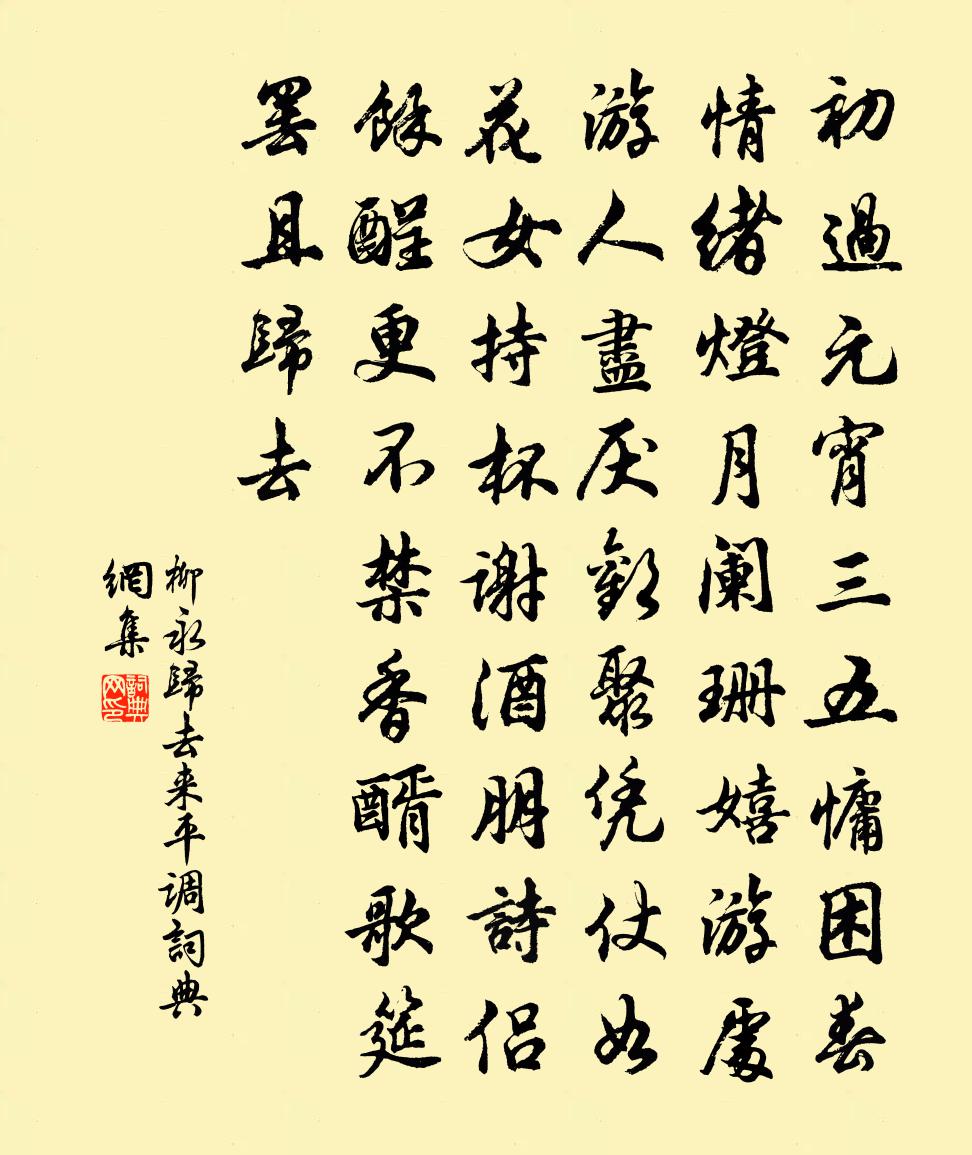 初過元宵三五慵困春
情緒燈月闌珊嬉游處
游人盡厌歡聚凭仗如
花女持杯謝酒朋詩侣
餘酲更不禁香醑歌筵
罢且歸去
柳永歸去来平调詞典
網集
詞典
网印